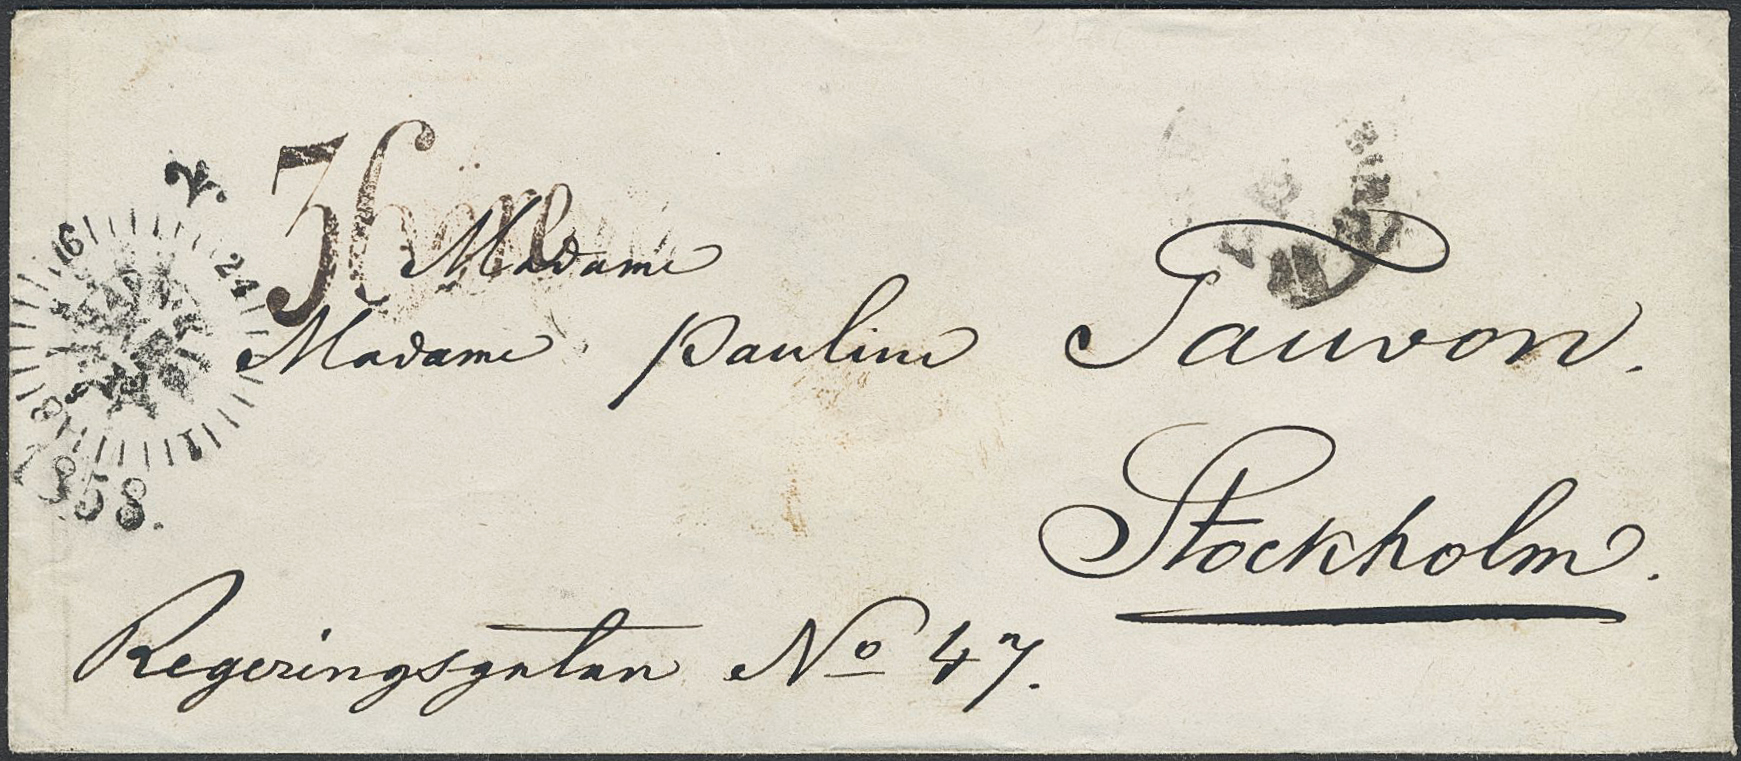 2.
16
24
8
1
1858.
Madame
Madame Pauline Tauvon.
Stockholm.
Regeringsgatan No 47.